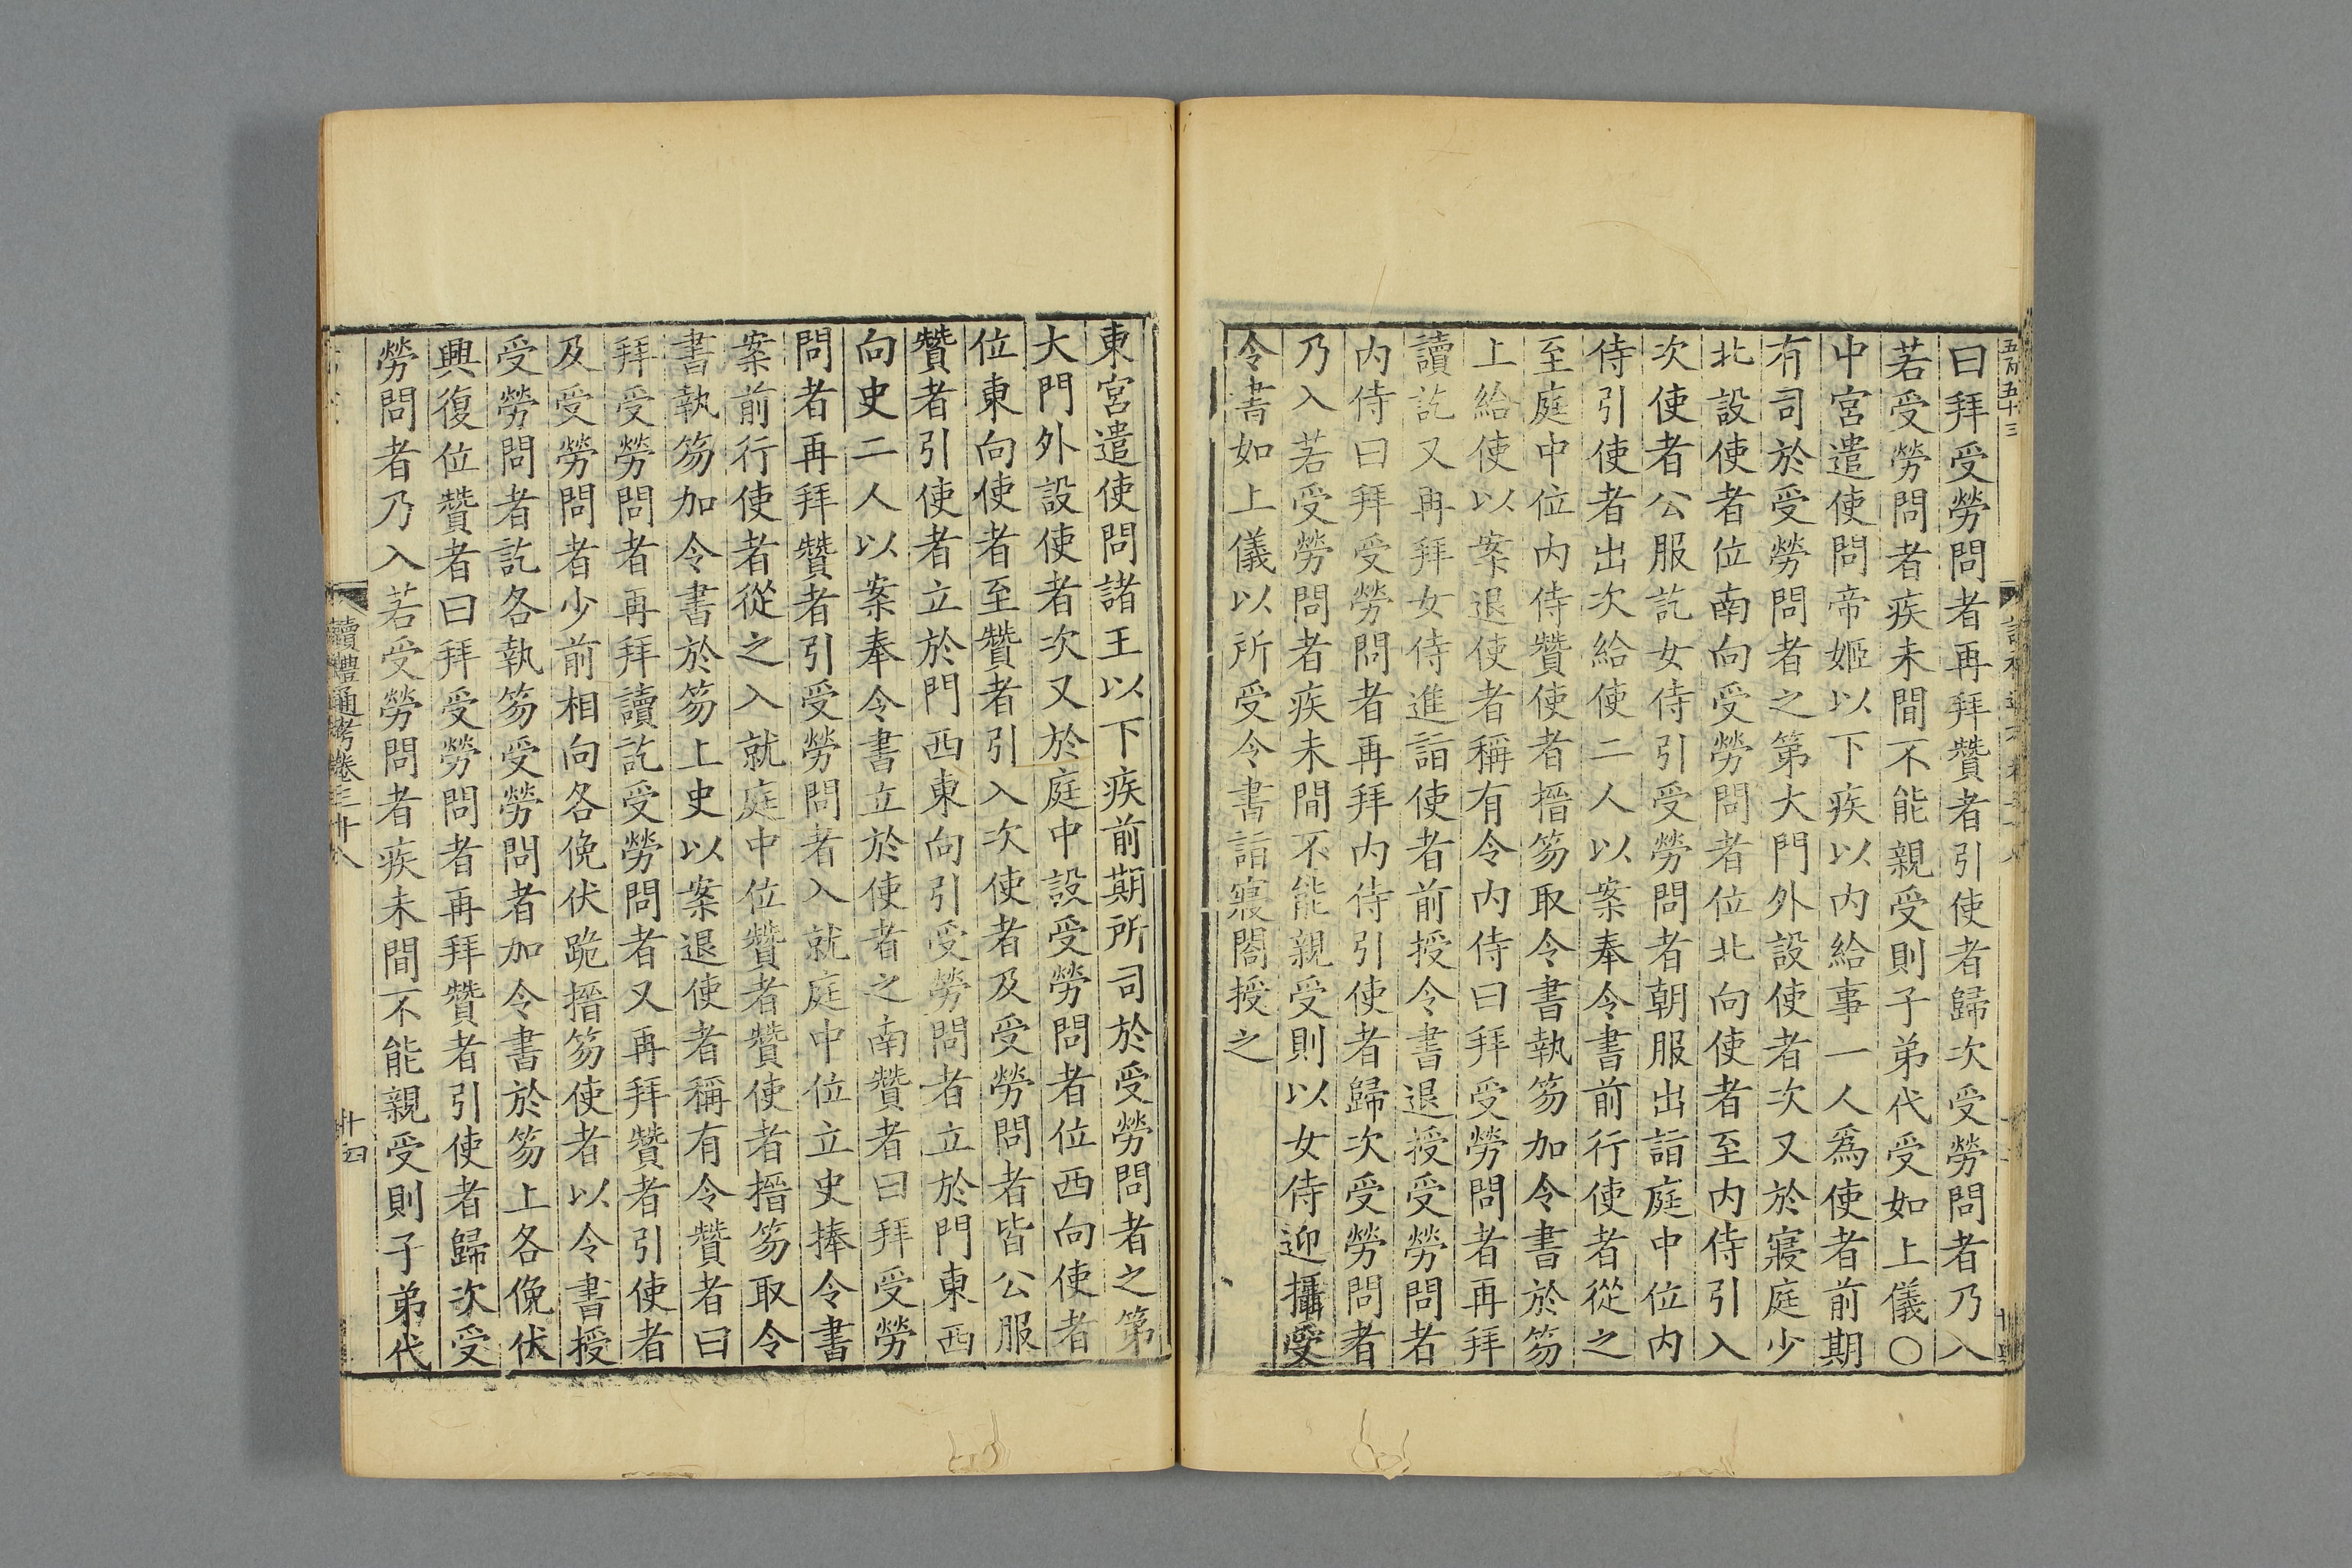 五百五十三
曰拜受勞問者再拜贊者引使者歸次受勞問者乃入
若受勞問者疾未間不能親受則子弟代受如上儀○
中宮遣使問帝姬以下疾以内給事一人爲使者前期
有司於受勞問者之第大門外設使者次又於寢庭少
北設使者位南向受勞問者位北向使者至内侍引入
次使者公服訖女侍引受勞問者朝服出詣庭中位内
侍引使者出次給使二人以案奉令書前行使者從之
至庭中位内侍贊使者搢笏取令書執笏加令書於笏
上給使以案退使者稱有令内侍曰拜受勞問者再拜
讀訖又再拜女侍進詣使者前授令書退授受勞問者
内侍曰拜受勞問者再拜内侍引使者歸次受勞問者
乃入若受勞問者疾未間不能親受則以女侍迎攝受
令書如上儀以所受令書詣寢閤授之
東宮遣使問諸王以下疾前期所司於受勞問者之第
大門外設使者次又於庭中設受勞問者位西向使者
位東向使者至贊者引入次使者及受勞問者皆公服
贊者引使者立於門西東向引受勞問者立於門東西
向史二人以案奉令書立於使者之南贊者曰拜受勞
問者再拜贊者引受勞問者入就庭中位立史捧令書
案前行使者從之入就庭中位贊者贊使者搢笏取令
書執笏加令書於笏上史以案退使者稱有令贊者曰
拜受勞問者再拜讀訖受勞問者又再拜贊者引使者
及受勞問者少前相向各俛伏跪搢笏使者以令書授
受勞問者訖各執笏受勞問者加令書於笏上各俛伏
興復位贊者曰拜受勞問者再拜贊者引使者歸次受
勞問者乃入若受勞問者疾未間不能親受則子弟代
讀禮通考卷三十八
十四